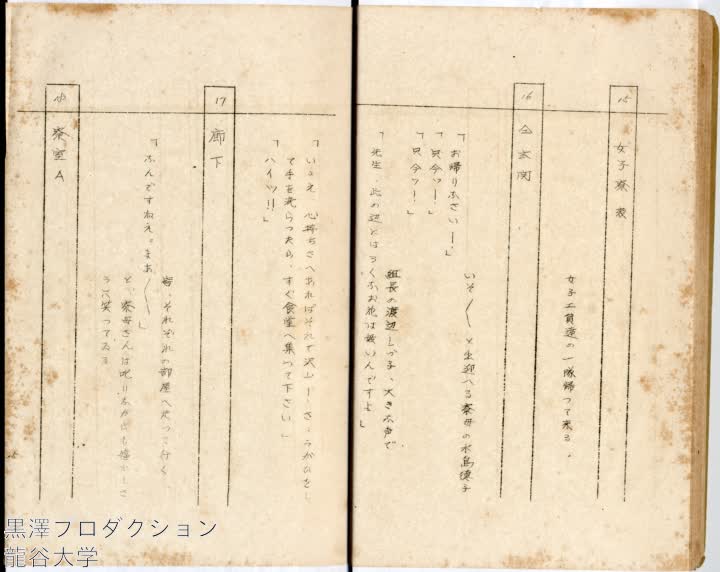 15
女子寮 表
女子工員達の一隊帰つて来る。
16
仝 玄関
「お帰りなさいー」
いそ〱と出迎へる寮母の水島徳子
「只今ッー！」
「只今ッー！」
組長の渡辺しづ子、大きな声で
「先生、此の辺とはろくなお花は無いんですよ」
「いゝえ、心持ちさへあればそれで沢山ーーさ、うがひをし
て手を洗らつたら、すぐ食堂へ集つて下さい」
「ハイッ!!」
17
廊下
皆、それぞれの部屋へ走つて行く
「なんですねえ。まあ〱」
と、寮母さんは叱りながらも嬉しさ
うに笑つてゐる
18
寮室A
黒澤プロダクション
龍谷大学